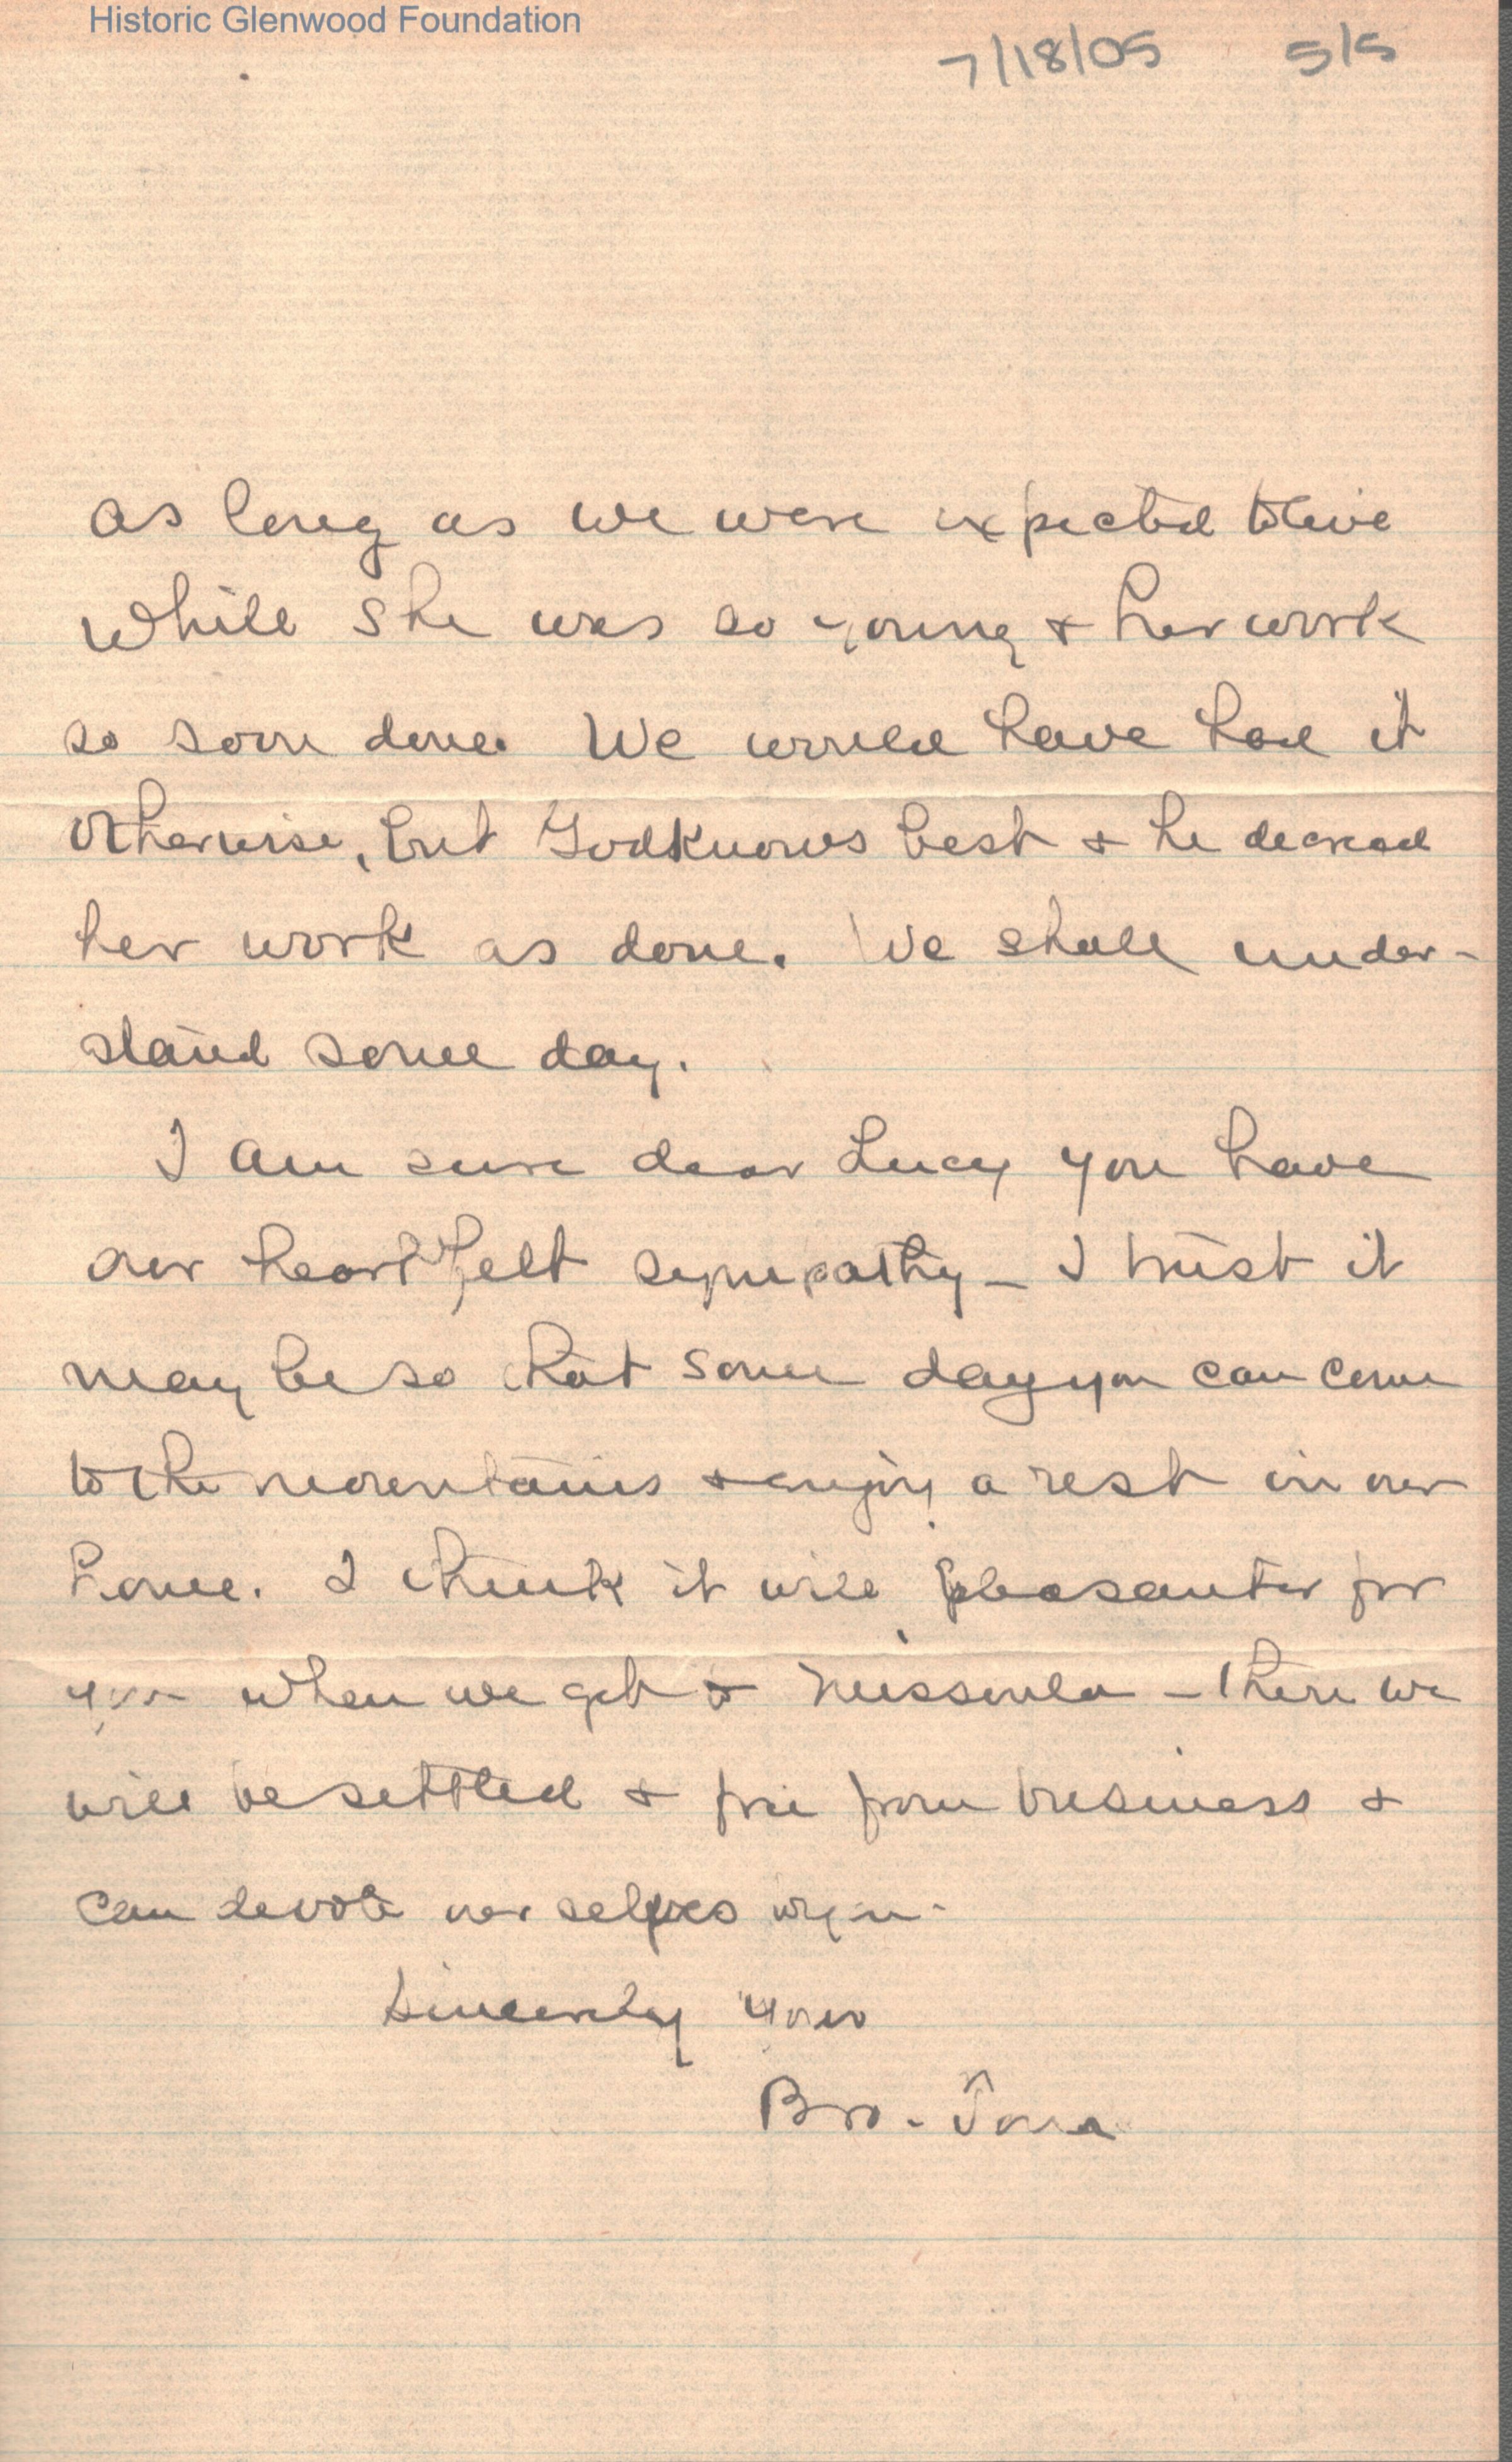 Historic Glenwood Foundation
7/18/05 5/5
as long as we were expected to live
while she was so young & her work
so soon done. We would have had it
otherwise, but God knows best & he decreed
her work as done. We shall under-
stand some day.
I am sure dear Lucy you have
our heart felt sympathy - I trust it
may be so that some day you can come
to the mountains & enjoy a rest in our
home. I think it will pleasanter for
you when we get to Missoula - there we
will be settled & free from business &
can devote our selves
Sincerely your
Bro. Tom